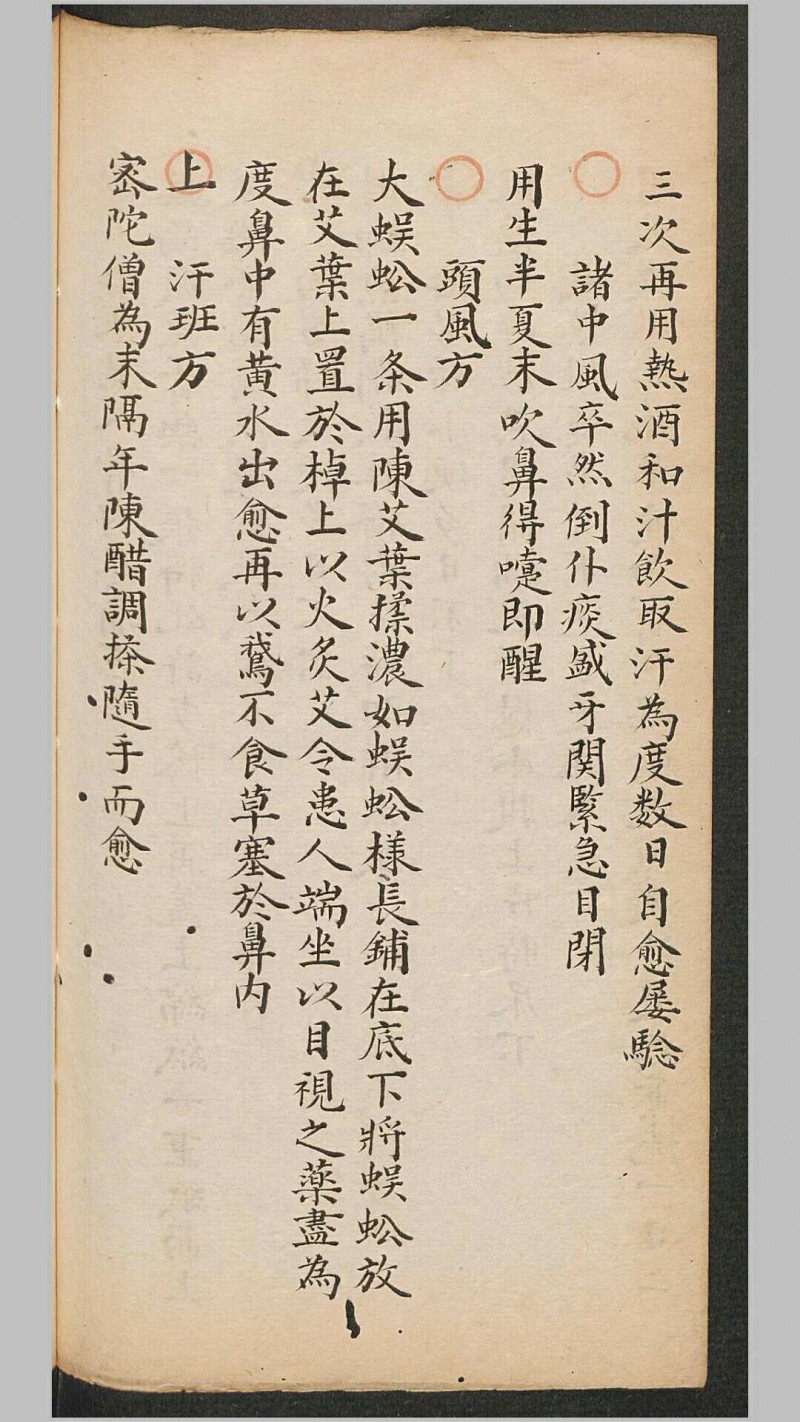 三次再用熱酒和汁飲取汗為度数日自愈屡驗
諸中風卒然倒仆痰盛牙関緊急目閉
用生半夏末吹鼻得嚏即醒
頭風方
大蜈蚣一条用陳艾葉揉濃如蜈蚣樣長鋪在底下將蜈蚣放
在艾葉上置於棹上以火炙艾令患人端坐以目視之藥盡為
度鼻中有黄水出愈再以鵞不食草塞於鼻内
上 汗班方
宻陀僧為末隔年陳醋調搽隨手而愈